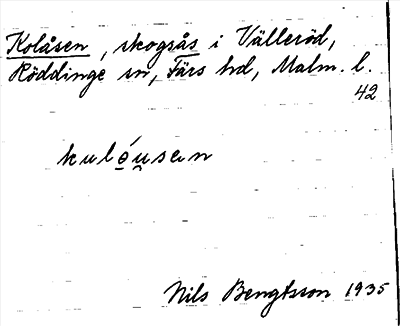 Kolåsen, skogsås i Välleröd,
Röddinge sn, Färs hd, Malm. l.
42
kuló̱u̯sen
Nils Bengtsson 1935